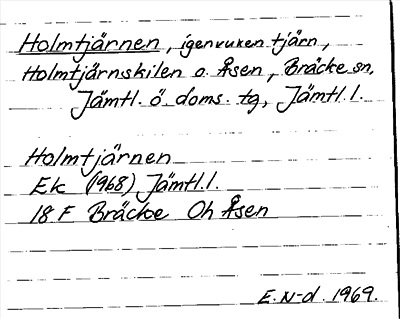 Holmtjärnen, igenvuxen tjärn,
Holmtjärnskilen o. Åsen, Bräcke sn,
Jämtl. ö. doms. tg, Jämtl. l.
Holmtjärnen
Ek (1968) Jämtl. l.
18 F Bräcke Oh Åsen
E. N-d. 1969.